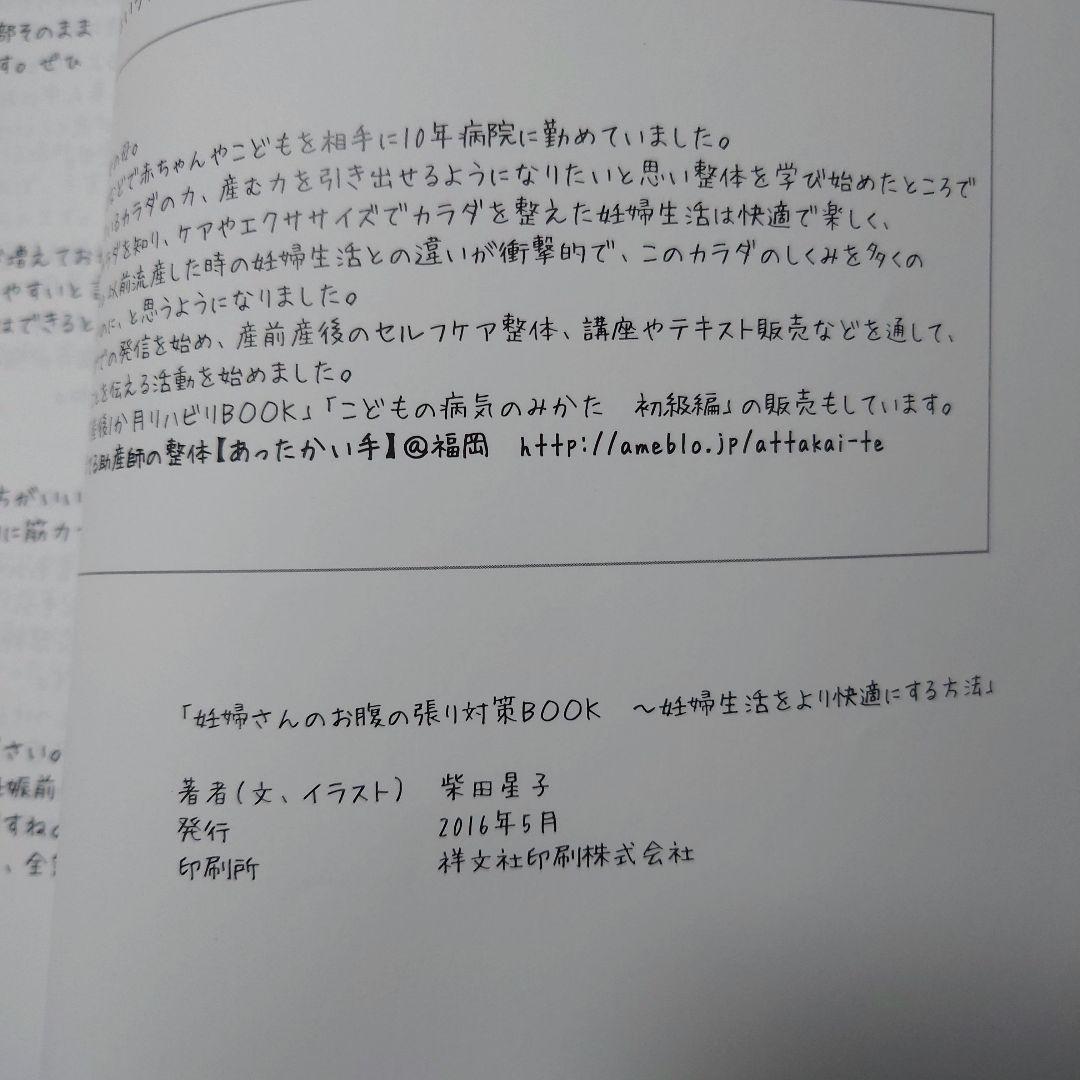 部そのまま
す。ぜひ
増えてお
やすいと
はできると
ちがいい
に筋力
さい。
娠前
すね
、全
どで赤ちゃんやこどもを相手に10年病院に勤めていました。
るカラダの力、産む力を引き出せるようになりたいと思い整体を学び始めたところで
ダを知り、ケアやエクササイズでカラダを整えた妊婦生活は快適で楽しく、
以前流産した時の妊婦生活との違いが衝撃的で、このカラダのしくみを多くの
のに、と思うようになりました。
での発信を始め、産前産後のセルフケア整体、講座やテキスト販売などを通して、
を伝える活動を始めました。
産後1か月リハビリBOOK」「こどもの病気のみかた　初級編」の販売もしています。
る助産師の整体【あったかい手】@福岡　http://ameblo.jp/attakai-te
「妊婦さんのお腹の張り対策BOOK　～妊婦生活をより快適にする方法」
著者(文、イラスト)　柴田星子
発行　2016年5月
印刷所　祥文社印刷株式会社